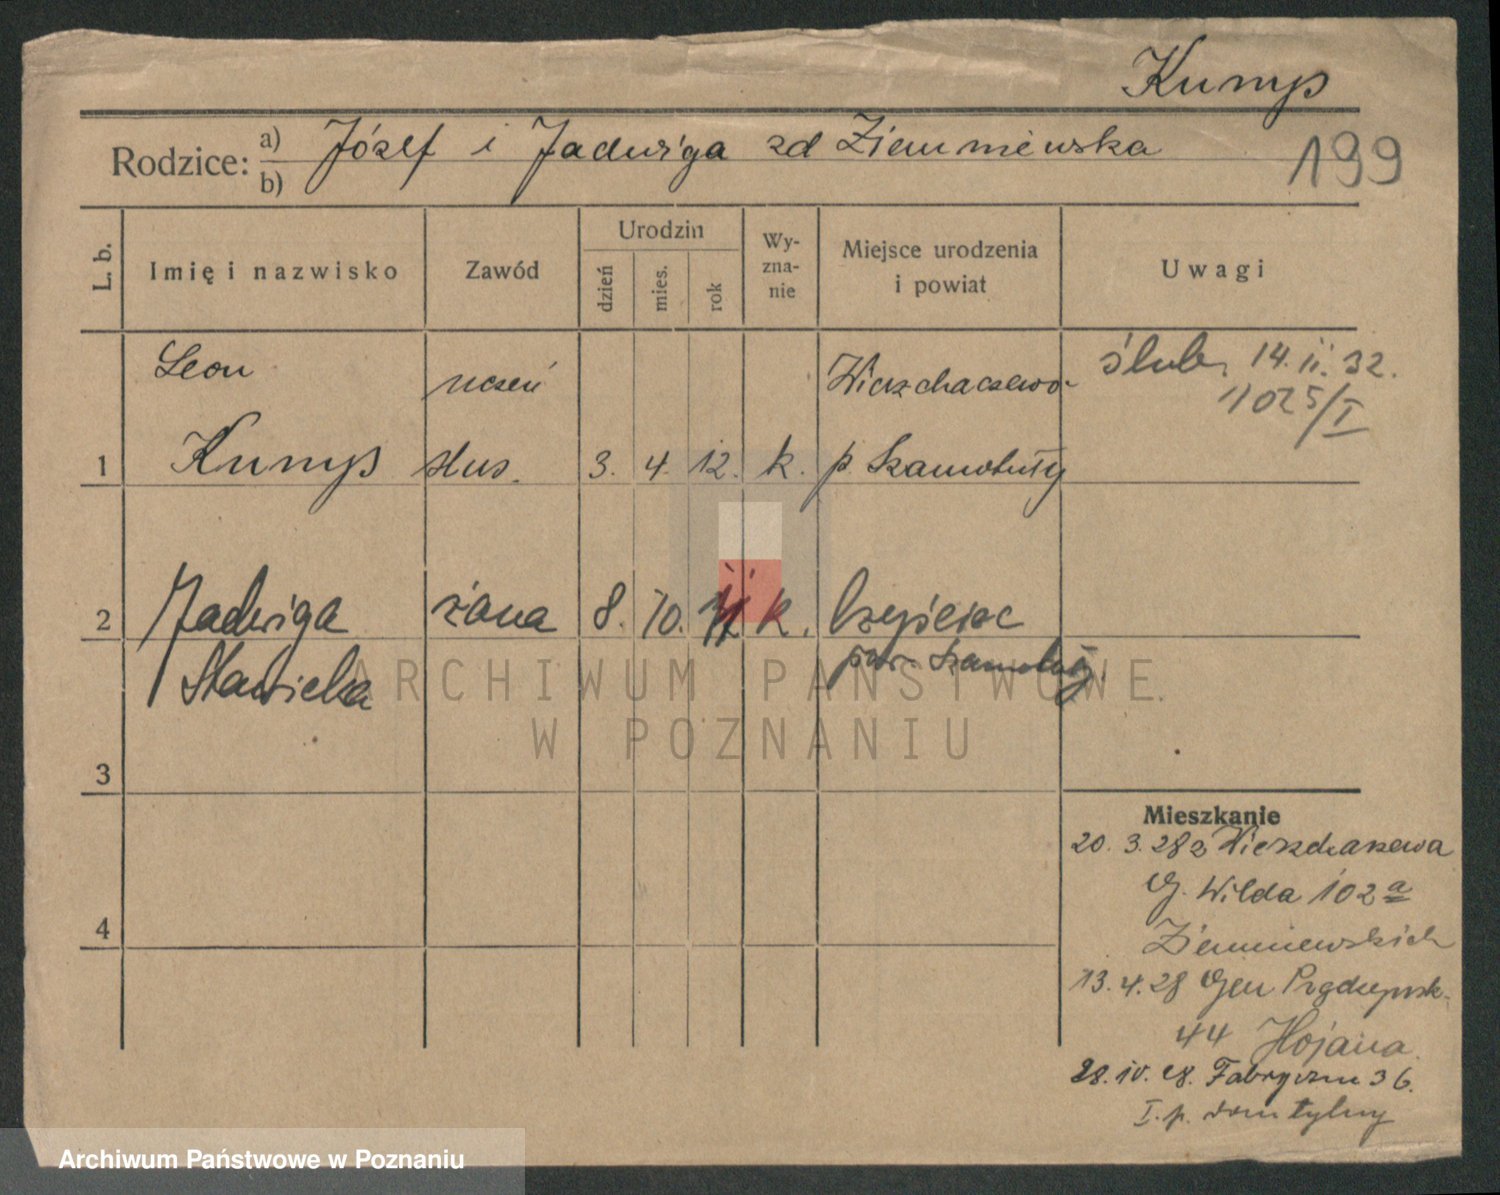 Kunys
199
Rodzice: a) Józef i Jadwiga zd Ziemniewska
b)
L. b.
Imię i nazwisko
Zawód
Urodzin
dzień
mies.
rok
Wy-
zna-
nie
Miejsce urodzenia
i powiat
Uwagi
Leon
uczeń
Wierzchaczewo
ślub. 14.II.32.
11025/I
1 Kunys ślus. 3. 4. 12. k. p. Szamotuły
2 Jadwiga żona 8. 10. k.
Stawicka
pow. Szamotuły.
3
4
Mieszkanie
20. 3. 28 z Wierzchaczewa
G. Wilda 102a
Ziemniewskich
13. 4. 28 Gen Prądzyńsk.
44 Hojana
28. IV. 28. Fabryczna 36.
I. p. dom tylny
ARCHIWUM PAŃSTWOWE
W POZNANIU
Archiwum Państwowe w Poznaniu